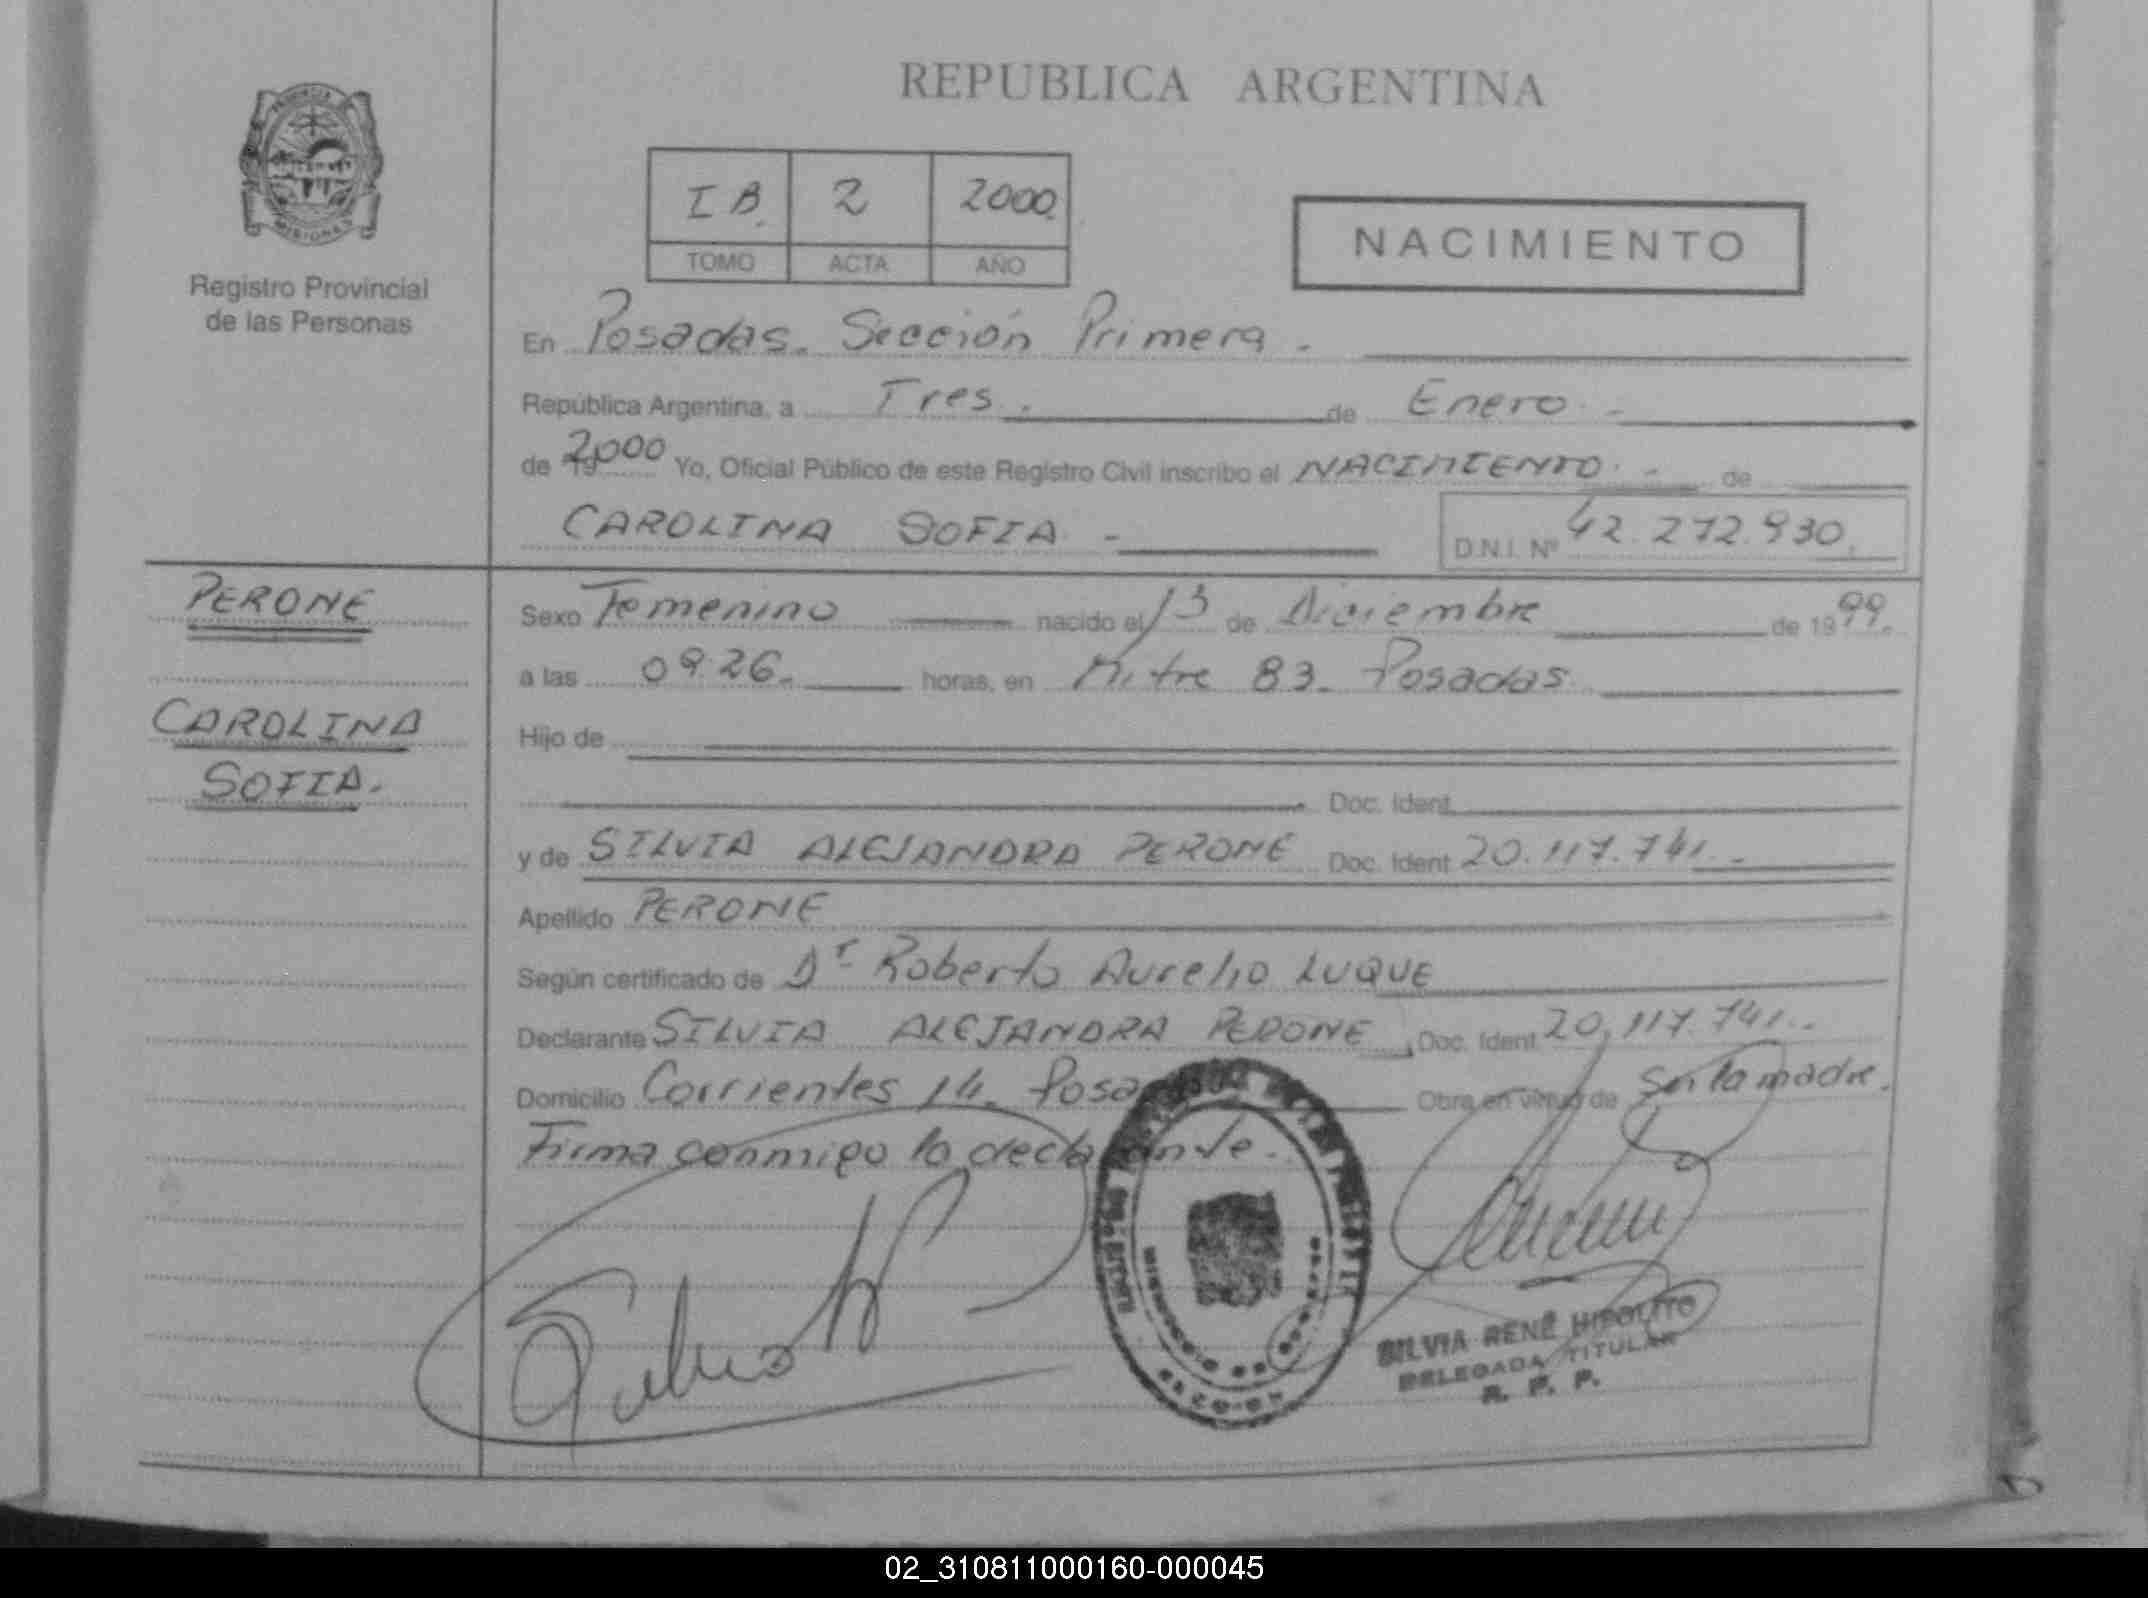 REPUBLICA ARGENTINA
PROVINCIA DE
MISIONES
Registro Provincial
de las Personas
I B. 2 2000
TOMO ACTA AÑO
NACIMIENTO
En Posadas. Sección Primera.
República Argentina, a Tres. de Enero.
de 19 2000 Yo, Oficial Público de este Registro Civil inscribo el NACIMIENTO. de
CAROLINA SOFIA D.N.I. Nº 42.272.930.
PERONE
CAROLINA
SOFIA.
Sexo Femenino nacido el 13 de Diciembre de 1999.
a las 09.26. horas, en Mitre 83. Posadas
Hijo de
Doc. Ident.
y de SILVIA ALEJANDRA PERONE Doc. Ident 20.117.741.
Apellido PERONE
Según certificado de Dr Roberto Aurelio LUQUE
Declarante SILVIA ALEJANDRA PERONE, Doc. Ident 20.117.741.
Domicilio Corrientes 14. Obra en virtud de Ser la madre.
Firma conmigo la declarante.
SILVIA RENÉ HIPOLITO
DELEGADA TITULAR
R. P. P.
02_310811000160-000045